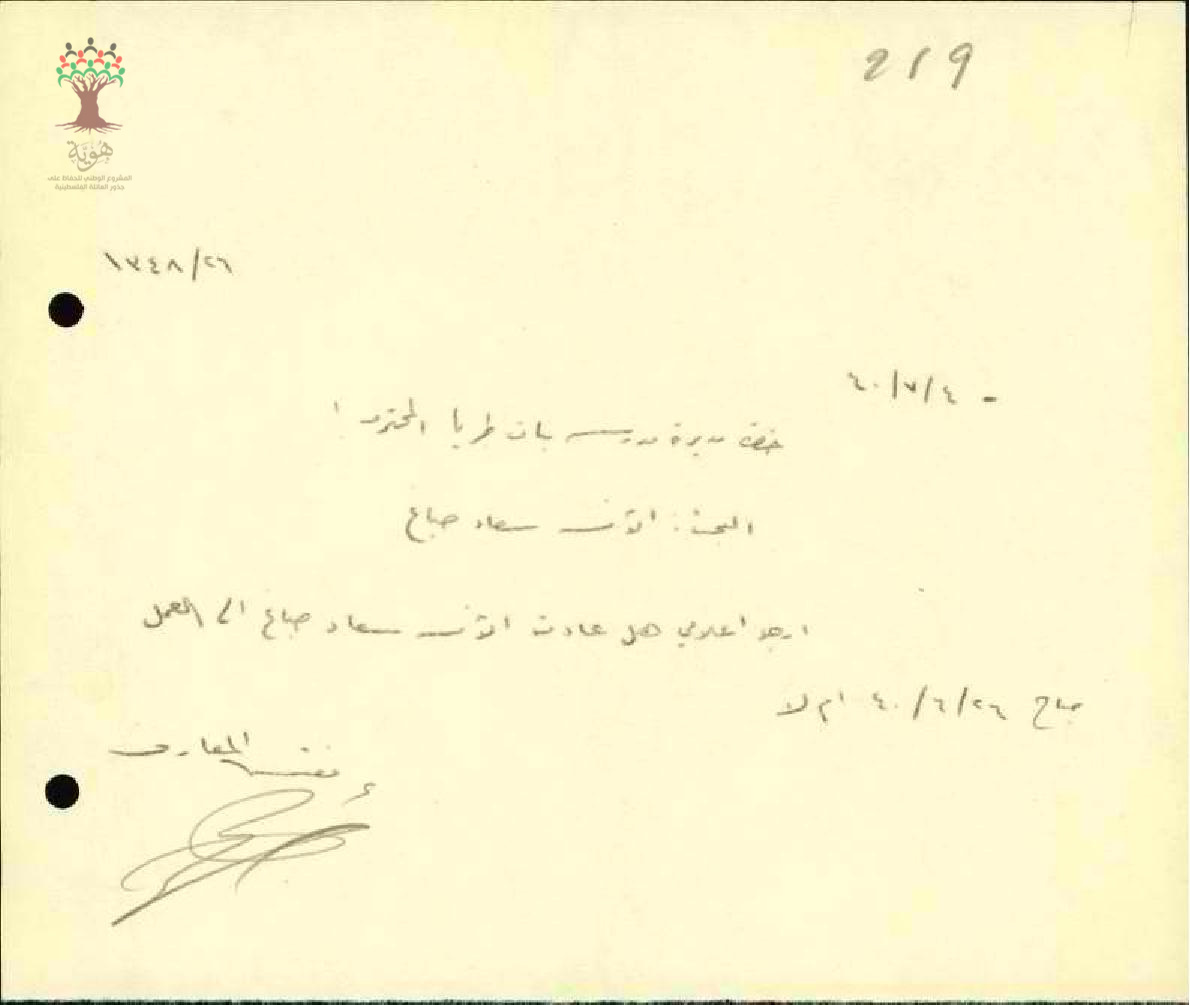 219
هُويّة
المشروع الوطني للحفاظ على
جذور العائلة الفلسطينية
١٧٤٨/٢٦
- ٤٠/٧/٤
حضرة مديرة مدرسة بنات طبريا المحترمة
البحث: الآنسة سعاد صباغ
ارجو اعلامي هل عادت الآنسة سعاد صباغ الى العمل
صباح ٤٠/٦/٢٦ ام لا
مفتش المعارف